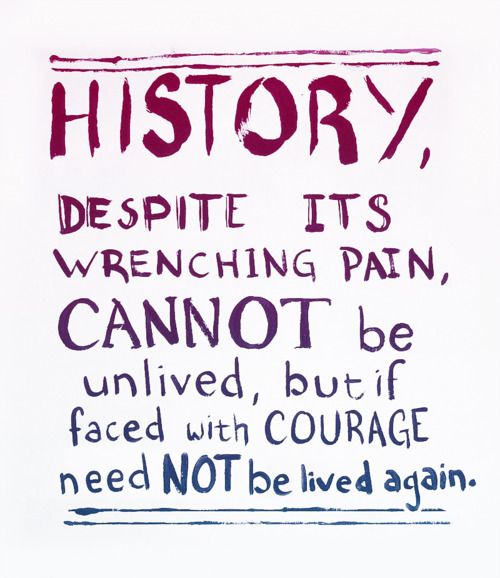 HISTORY,
DESPITE ITS
WRENCHING PAIN,
CANNOT be
unlived, but if
faced with COURAGE
need NOT be lived again.